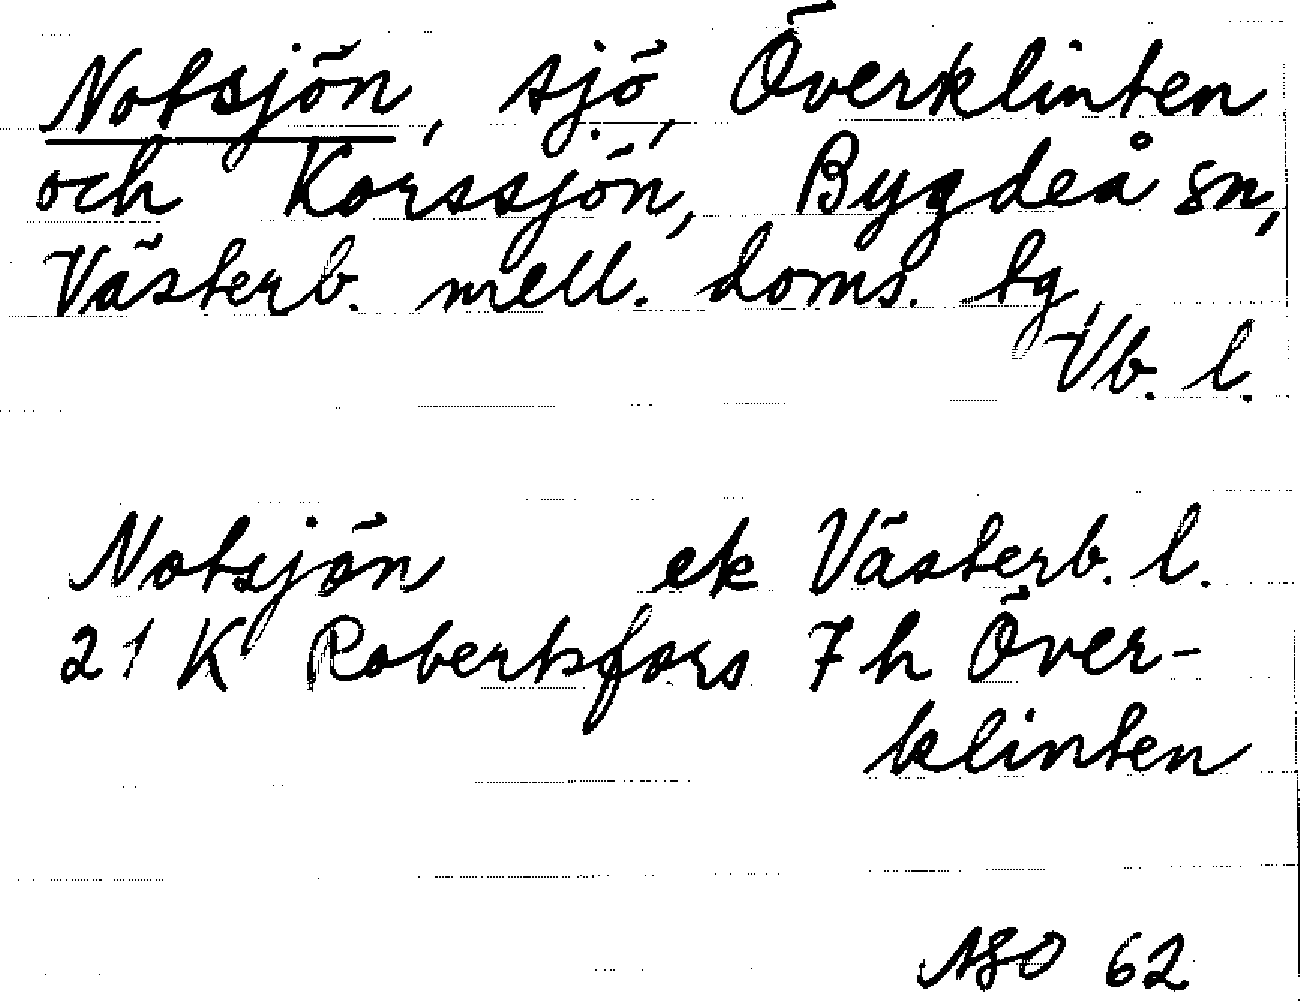 Notsjön, sjö, Överklinten
och Korssjön, Bygdeå sn,
Västerb. mell. doms. tg
Vb. l.
Notsjön ek Västerb. l.
21 K Robertsfors 7 h Över-
klinten
62